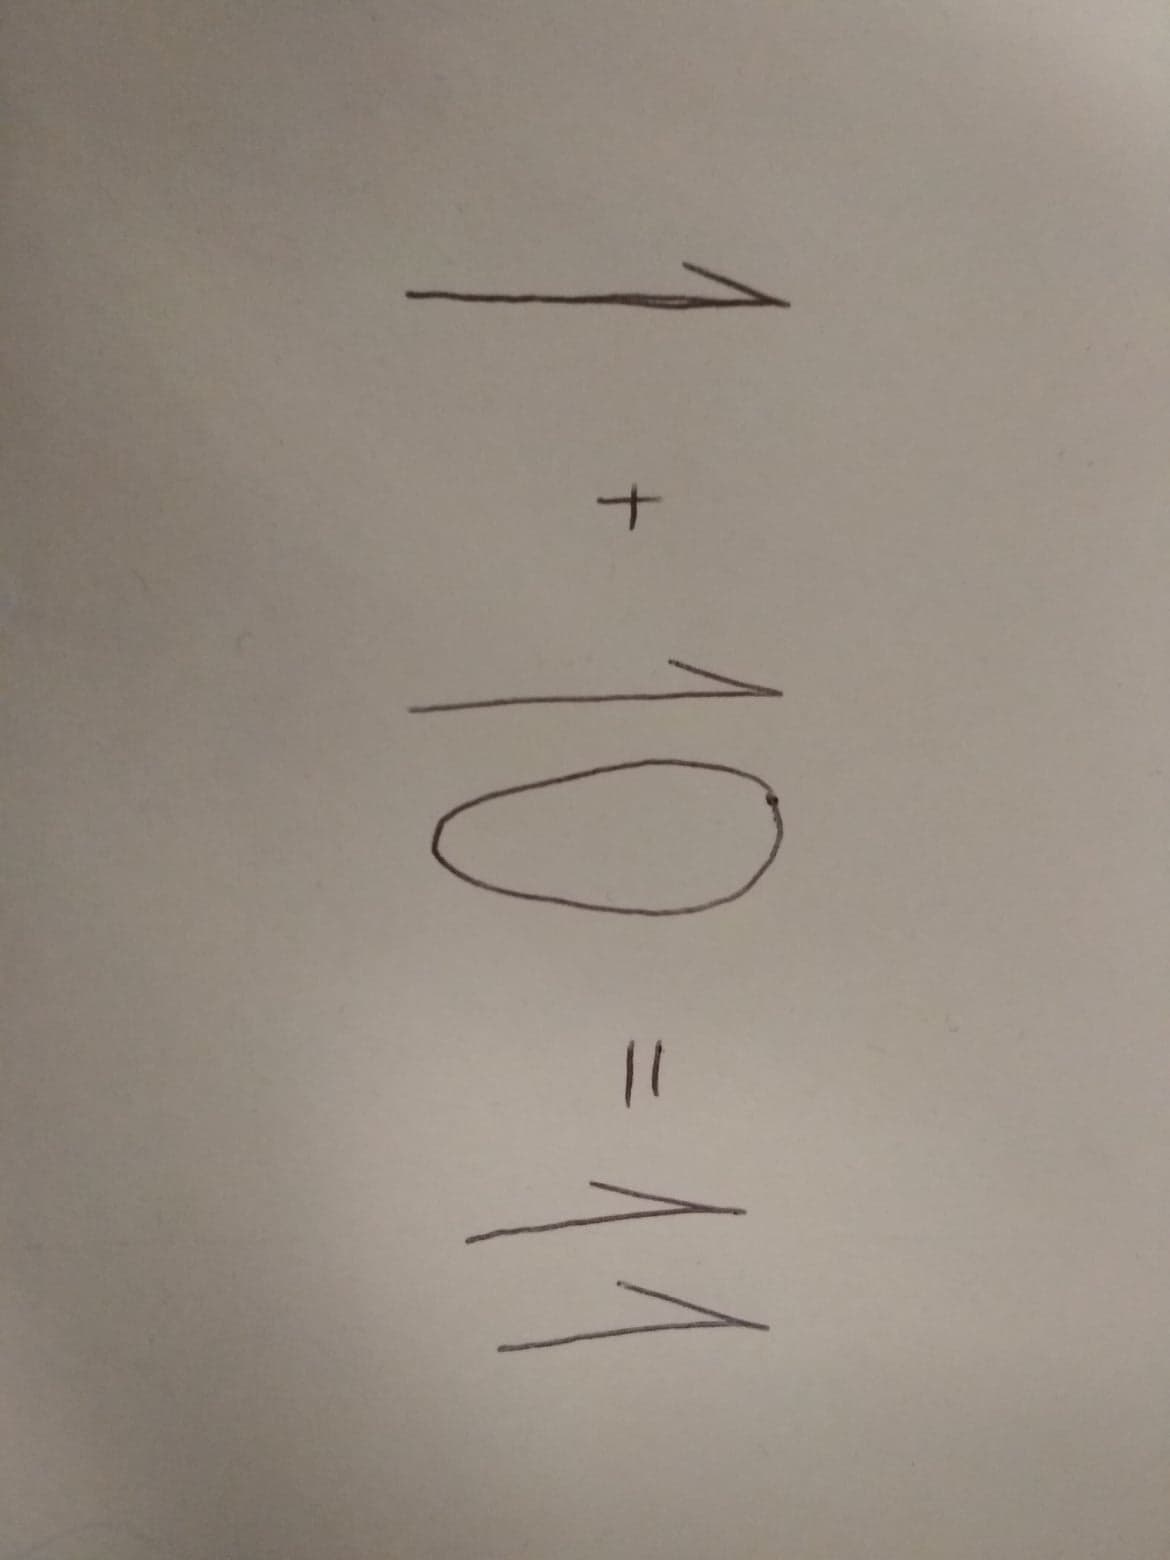 1 + 10 = 11